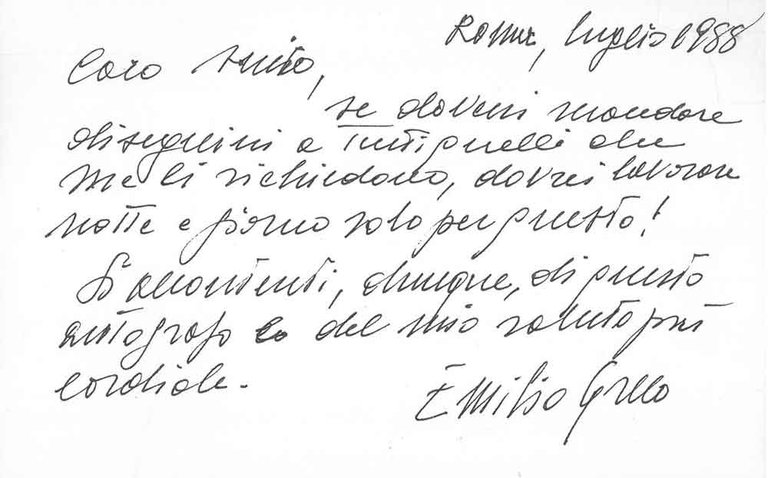 Roma, luglio 1988
Caro amico,
se dovessi mandare
disegnini a tutti quelli che
me li richiedono, dovrei lavorare
notte e giorno solo per questo!
Si accontenti, dunque, di questo
autografo e del mio saluto più
cordiale.
Emilio Greco